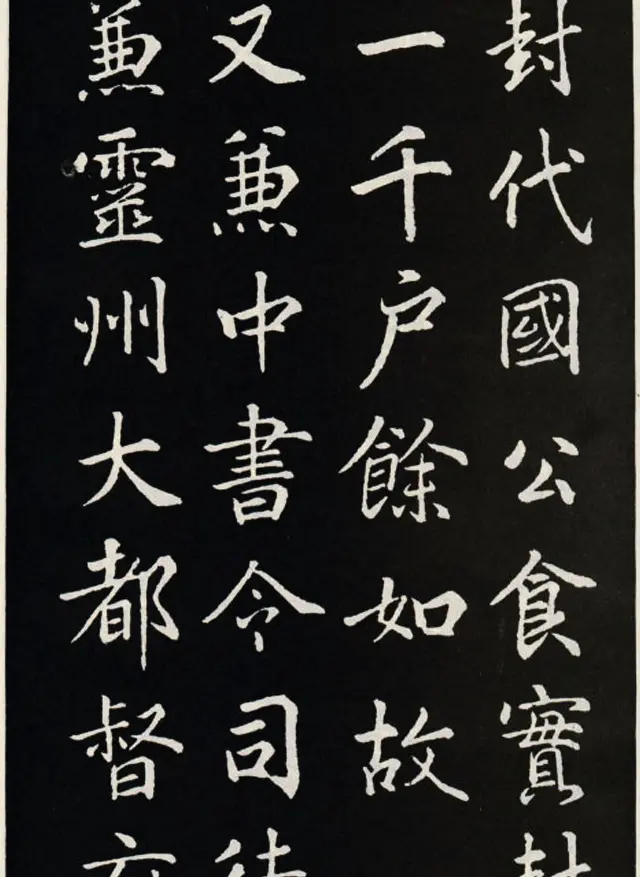 封代國公食實封
一千户餘如故
又兼中書令司
兼靈州大都督